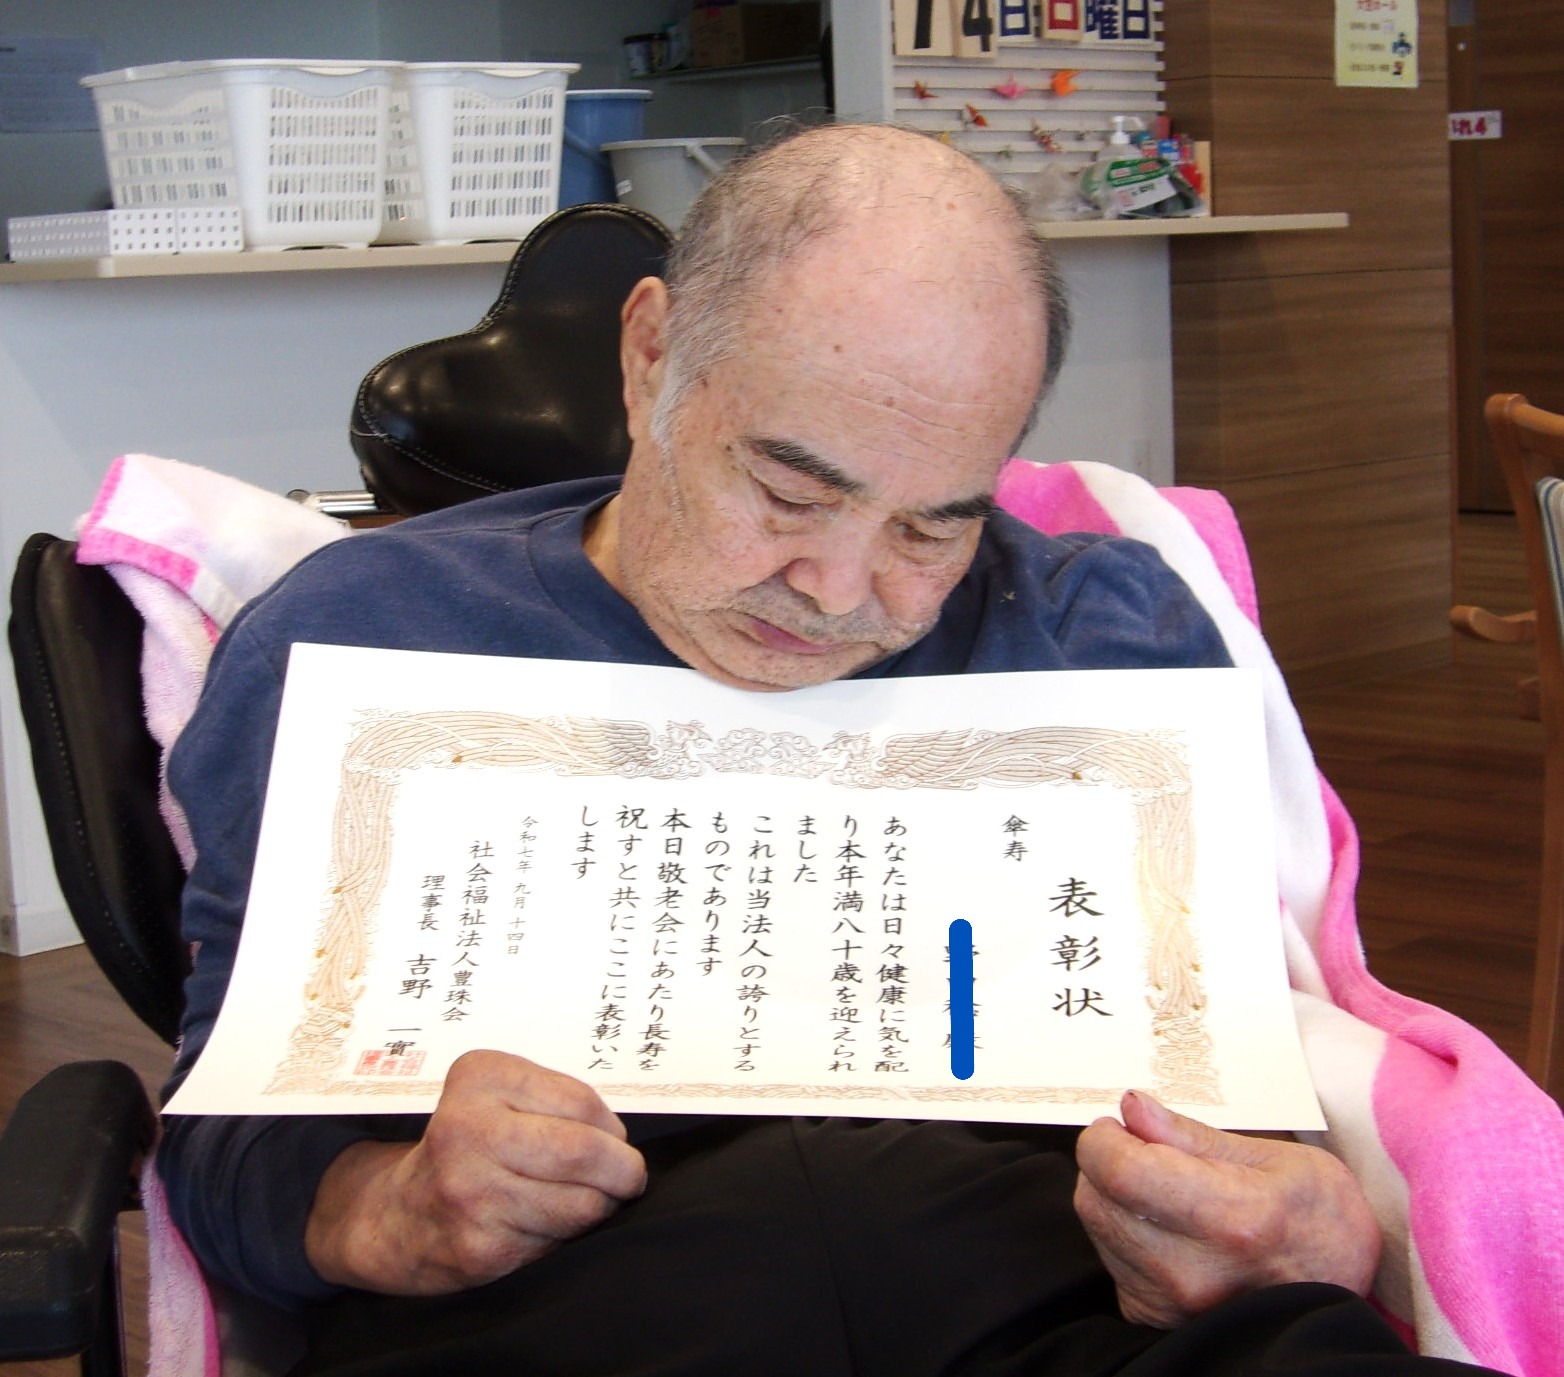 14日日曜日
表彰状
傘寿
あなたは日々健康に気を配
り本年満八十歳を迎えられ
ました
これは当法人の誇りとする
ものであります
本日敬老会にあたり長寿を
祝すと共にここに表彰いた
します
令和七年 九月 十四日
社会福祉法人豊珠会
理事長 吉野 一實